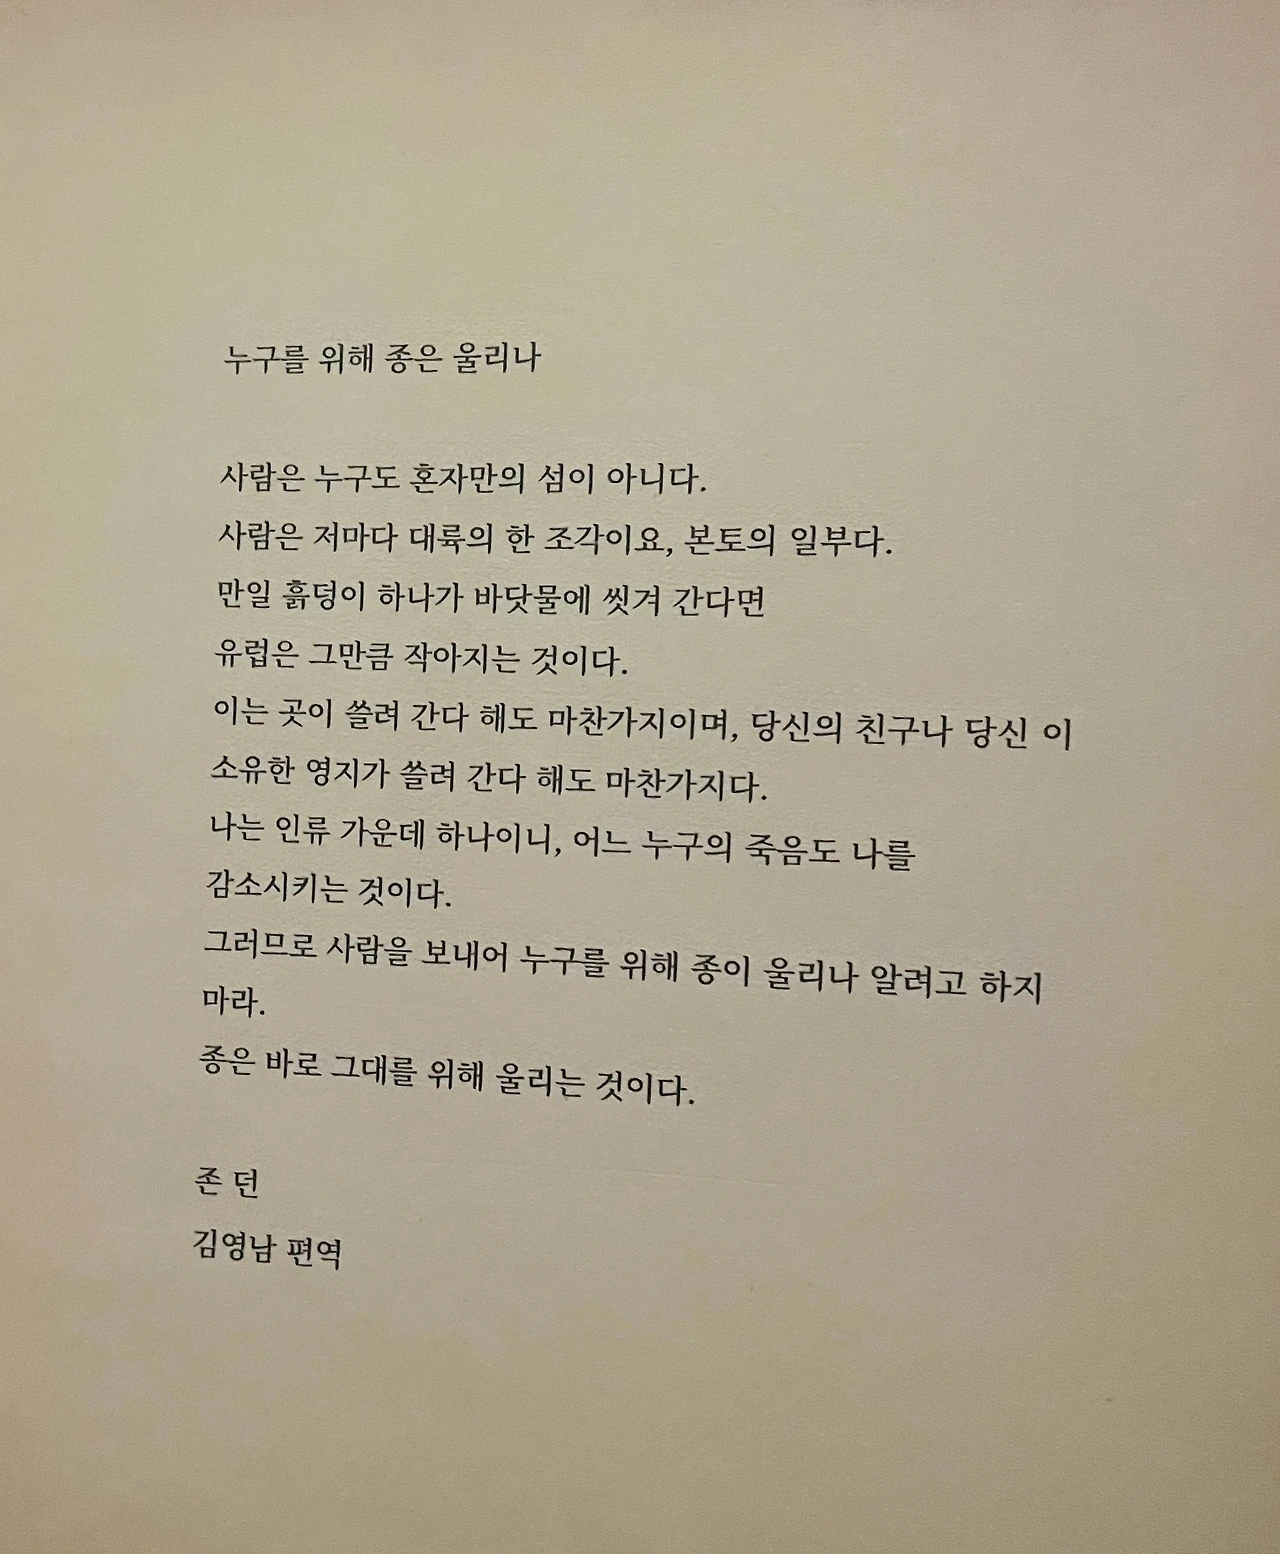 누구를 위해 종은 울리나
사람은 누구도 혼자만의 섬이 아니다.
사람은 저마다 대륙의 한 조각이요, 본토의 일부다.
만일 흙덩이 하나가 바닷물에 씻겨 간다면
유럽은 그만큼 작아지는 것이다.
이는 곳이 쓸려 간다 해도 마찬가지이며, 당신의 친구나 당신 이
소유한 영지가 쓸려 간다 해도 마찬가지다.
나는 인류 가운데 하나이니, 어느 누구의 죽음도 나를
감소시키는 것이다.
그러므로 사람을 보내어 누구를 위해 종이 울리나 알려고 하지
마라.
종은 바로 그대를 위해 울리는 것이다.
존 던
김영남 편역